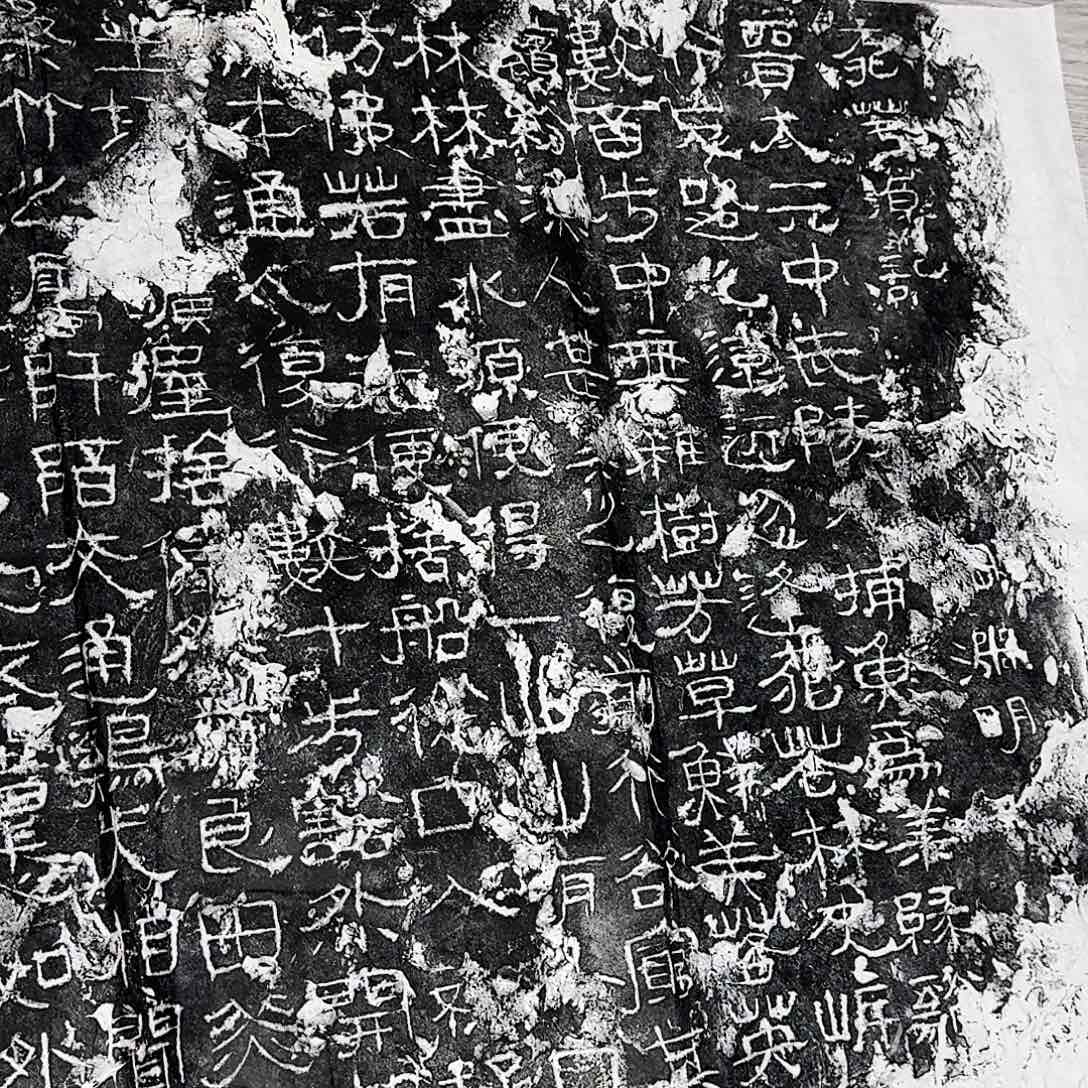 淵明
源記
晉太元中武陵人捕魚為業緣谿
行忘路之遠近忽逢桃花林夾岸
數百步中無雜樹芳草鮮美落英
繽紛漁人甚異之復前行欲窮其
林林盡水源便得一山山有口
仿佛若有光便捨船從口入初
才通人復行數十步豁開
土地曠屋捨儼有良田美
桑竹之屬阡陌交通雞犬相聞
衣著如外